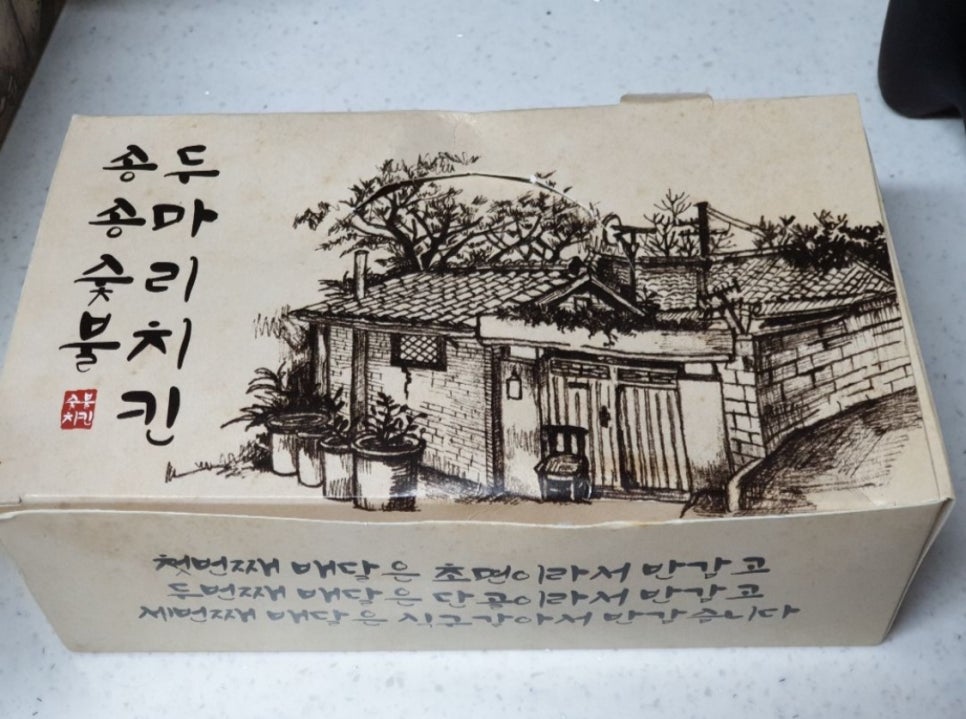 두마리치킨
송송숯불
숯불
치킨
첫번째 배달은 초면이라서 반갑고
두번째 배달은 단골이라서 반갑고
세번째 배달은 식구같아서 반갑습니다